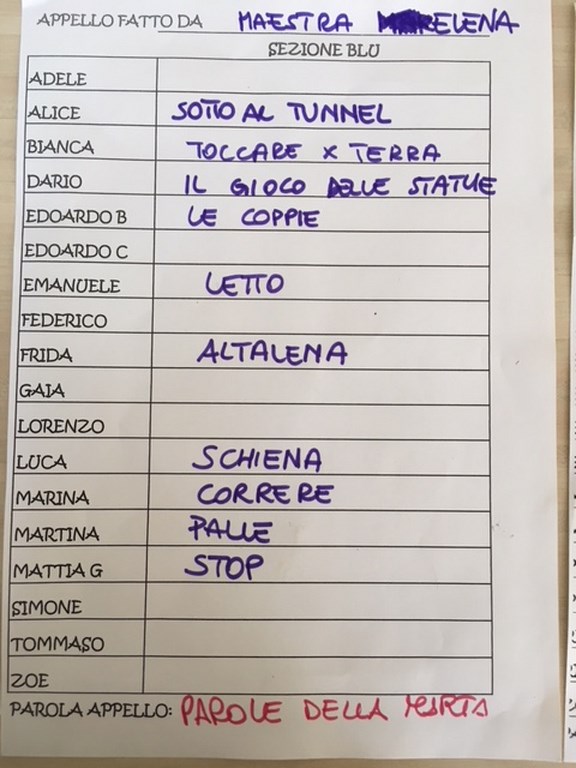 APPELLO FATTO DA MAESTRA ELENA
SEZIONE BLU
ADELE
ALICE SOTTO AL TUNNEL
BIANCA TOCCARE X TERRA
DARIO IL GIOCO DELLE STATUE
EDOARDO B LE COPPIE
EDOARDO C
EMANUELE LETTO
FEDERICO
FRIDA ALTALENA
GAIA
LORENZO
LUCA SCHIENA
MARINA CORRERE
MARTINA PALLE
MATTIA G STOP
SIMONE
TOMMASO
ZOE
PAROLA APPELLO: PAROLE DELLA MARTA